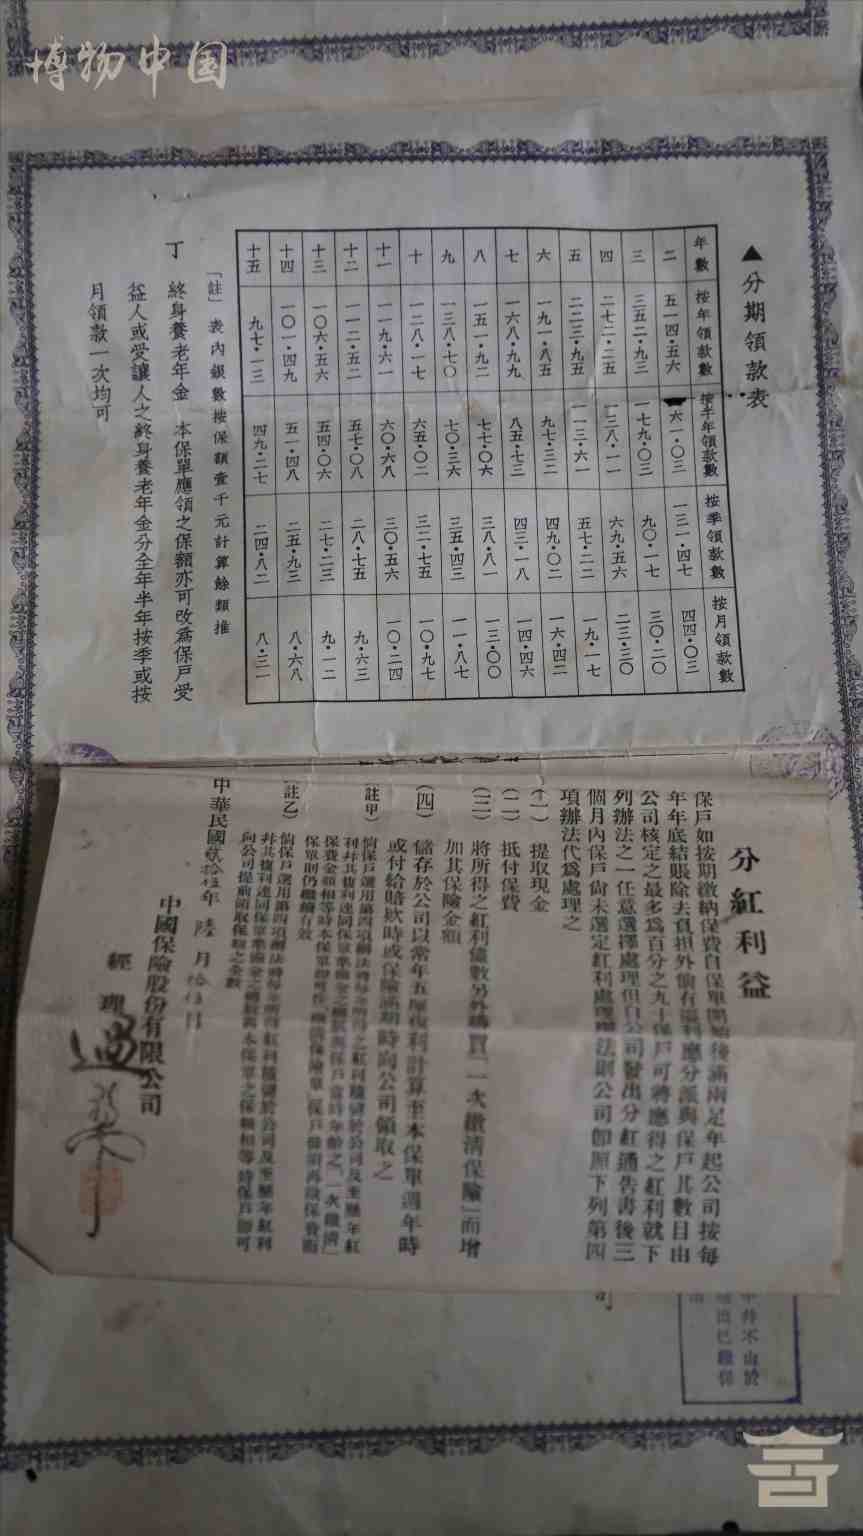 博物中国
▲分期領款表
年數 按年領款數 按半年領款數 按季領款數 按月領款數
二 五一四·五六 六一·〇三 一三一·四七 四四·〇三
三 三五二·九三 一七九·〇三 九〇·一七 三〇·二〇
四 二七二·二五 一三八·一一 六九·五六 二三·三〇
五 二二三·九五 一一三·六一 五七·二二 一九·一七
六 一九一·八五 九七·三二 四九·〇二 一六·四二
七 一六八·九九 八五·七三 四三·一八 一四·四六
八 一五一·九二 七七·〇六 三八·八一 一三·〇〇
九 一三八·七〇 七〇·三六 三五·四三 一一·八七
十 一二八·一七 六五·〇二 三二·七五 一〇·九七
十一 一一九·六一 六〇·六八 三〇·五六 一〇·二四
十二 一一二·五二 五七·〇八 二八·七五 九·六三
十三 一〇六·五六 五四·〇六 二七·二三 九·一二
十四 一〇一·四九 五一·四八 二五·九三 八·六八
十五 九七·一三 四九·二七 二四·八二 八·三一
「註」表內銀數按保額壹千元計算餘類推
丁 終身養老年金 本保單應領之保額亦可改爲保戶受
益人或受讓人之終身養老年金分全年半年按季或按
月領款一次均可
分紅利益
保戶如按期繳納保費自保單開始後滿兩足年起公司按每
年年底結賬除去負担外倘有溢利應分派與保戶其數目由
公司核定之最多爲百分之九十保戶可將應得之紅利就下
列辦法之一任意選擇處理但自公司發出分紅通告書後三
個月內保戶尙未選定紅利處理辦法則公司卽照下列第四
項辦法代爲處理之
(一) 提取現金
(二) 抵付保費
(三) 將所得之紅利儘數另外購買「一次繳清保險」而增
加其保險金額
(四) 儲存於公司以常年五厘複利計算至本保單週年時
或付給賠欵時或保險滿期時向公司領取之
(註甲) 倘保戶選用第四項辦法將每年所得之紅利積儲於公司及至歷年紅
利幷其複利連同保單準備金之總數與保戶當時年齡之「一次繳清」
保費金額相等時本保單卽可作「繳清保險單」保戶毋須再繳保費而
保單則仍繼續有效
(註乙) 倘保戶選用第四項辦法將每年所得紅利積儲於公司及至歷年紅利
幷其複利連同保單準備金之總數與本保單之保額相等時保戶卽可
向公司提前領取保額之全數
中華民國貳拾伍年 陸月拾伍日
中國保險股份有限公司
經理